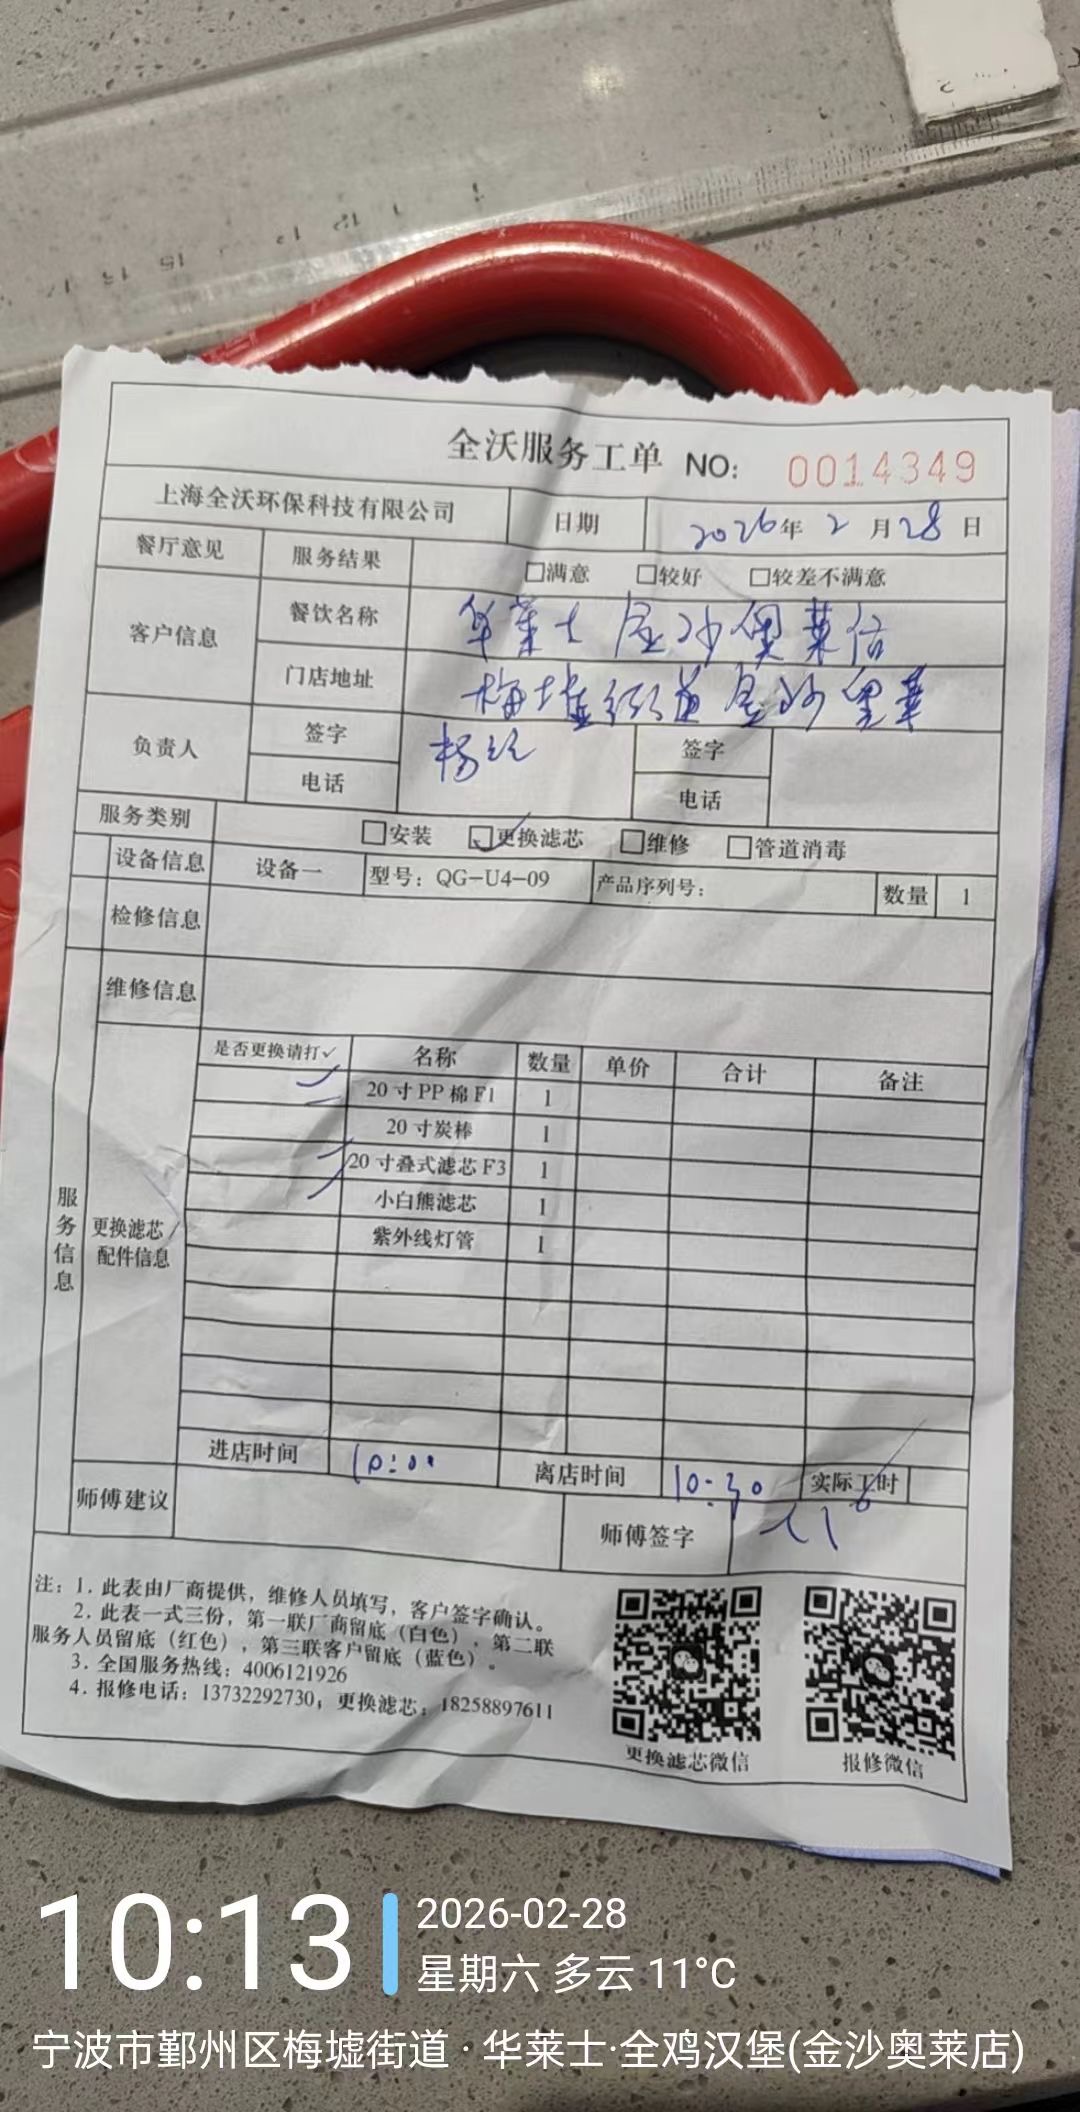 全沃服务工单 NO: 0014349
上海全沃环保科技有限公司 日期 2026年 2月28日
餐厅意见 服务结果 □满意 □较好 □较差不满意
客户信息 餐饮名称 华莱士 金沙奥莱店
门店地址 梅墟街道金沙奥莱
负责人 签字 签字
电话 电话
服务类别 □安装 □更换滤芯 □维修 □管道消毒
设备信息 设备一 型号：QG-U4-09 产品序列号： 数量 1
检修信息
维修信息
服务信息
更换滤芯/配件信息
是否更换请打✓ 名称 数量 单价 合计 备注
20寸PP棉F1 1
20寸炭棒 1
20寸叠式滤芯F3 1
小白熊滤芯 1
紫外线灯管 1
进店时间 10:00 离店时间 10:30 实际工时
师傅建议 师傅签字
注：1. 此表由厂商提供，维修人员填写，客户签字确认。
2. 此表一式三份，第一联厂商留底（白色），第二联
服务人员留底（红色），第三联客户留底（蓝色）。
3. 全国服务热线：4006121926
4. 报修电话：13732292730；更换滤芯：18258897611
更换滤芯微信 报修微信
10:13
2026-02-28
星期六 多云 11°C
宁波市鄞州区梅墟街道·华莱士·全鸡汉堡(金沙奥莱店)